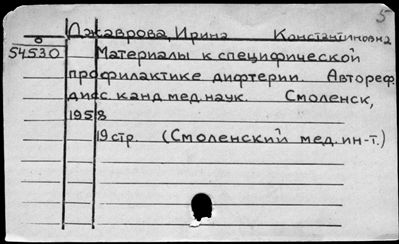 5
Джаврова, Ирина Константиновна
54530 Материалы к специфической
профилактике дифтерии. Автореф.
дисс канд мед наук. Смоленск,
1958
19 стр. (Смоленский мед. ин-т.)